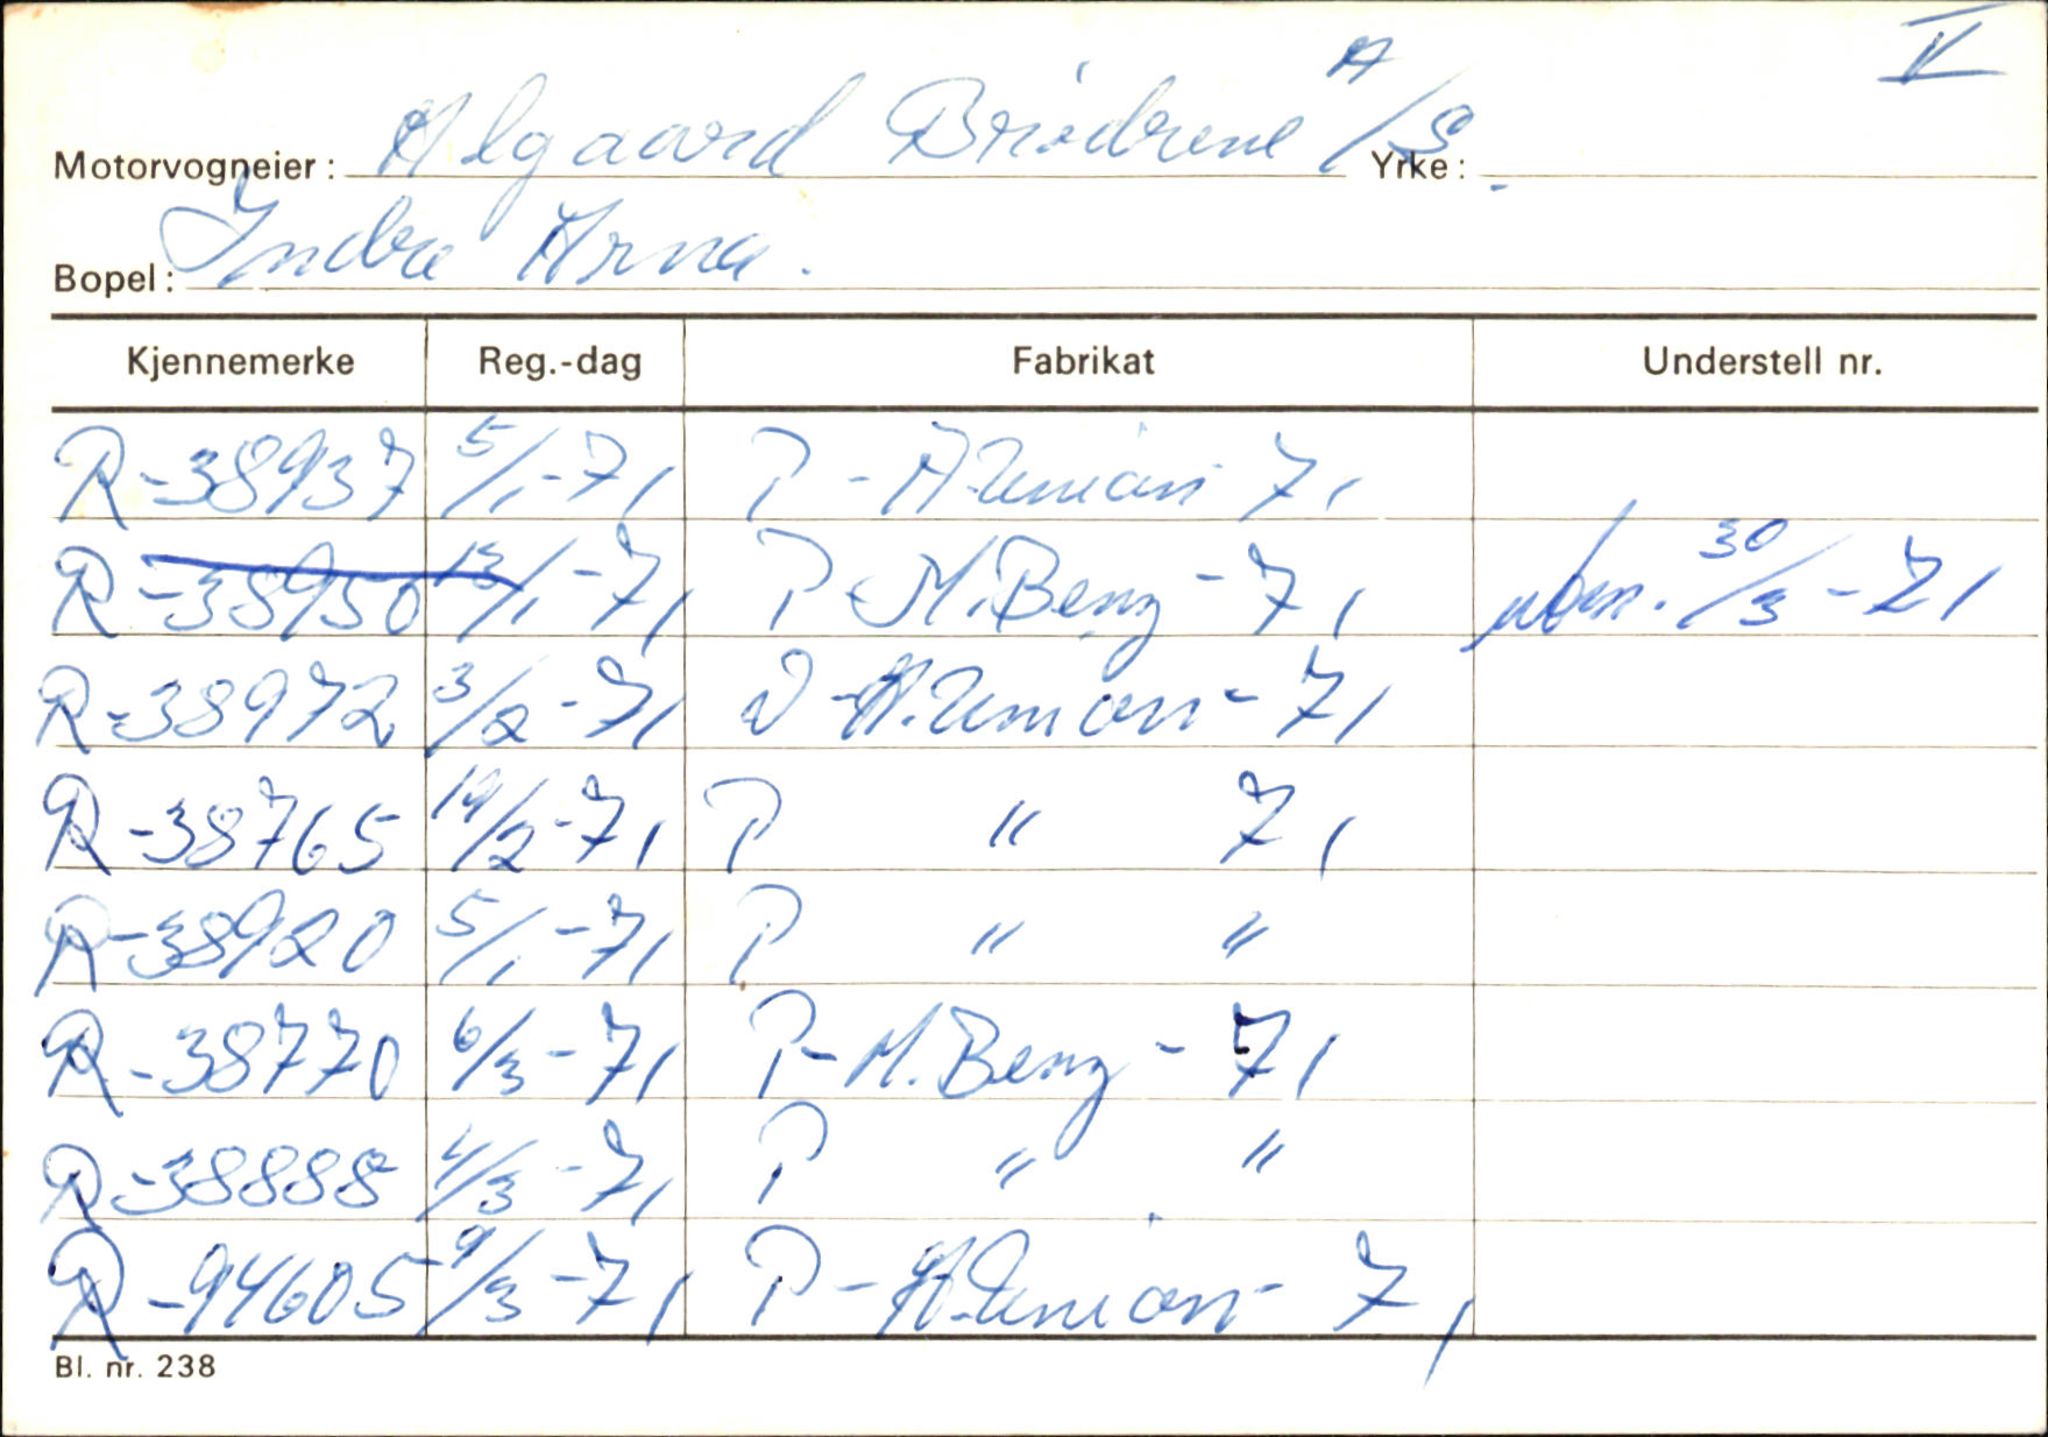 V
Motorvogneier: Algaard Brødrene A/S. Yrke:
Bopel: Indre Arna.
Kjennemerke Reg.-dag Fabrikat Understell nr.
R-38937 5/1-71 P - A.Union 71
R-38950 13/1-71 P-M.Benz-71 ubm. 30/3-71
R-38972 3/2-71 V-A.Union-71
R-38765 19/2-71 P " 71
R-38920 5/1-71 P " "
R-38770 6/3-71 P-M.Benz-71
R-38888 4/3-71 P " "
R-94605 9/3-71 P-A.Union-71
Bl. nr. 238